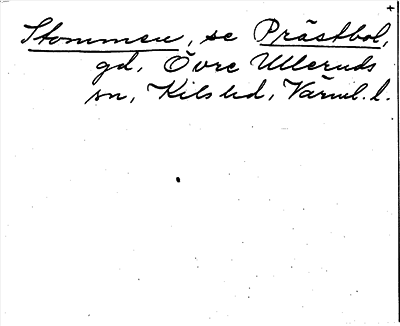 Stommen, se Prästbol,
gd, Övre Ulleruds
sn, Kils hd, Värml. l.